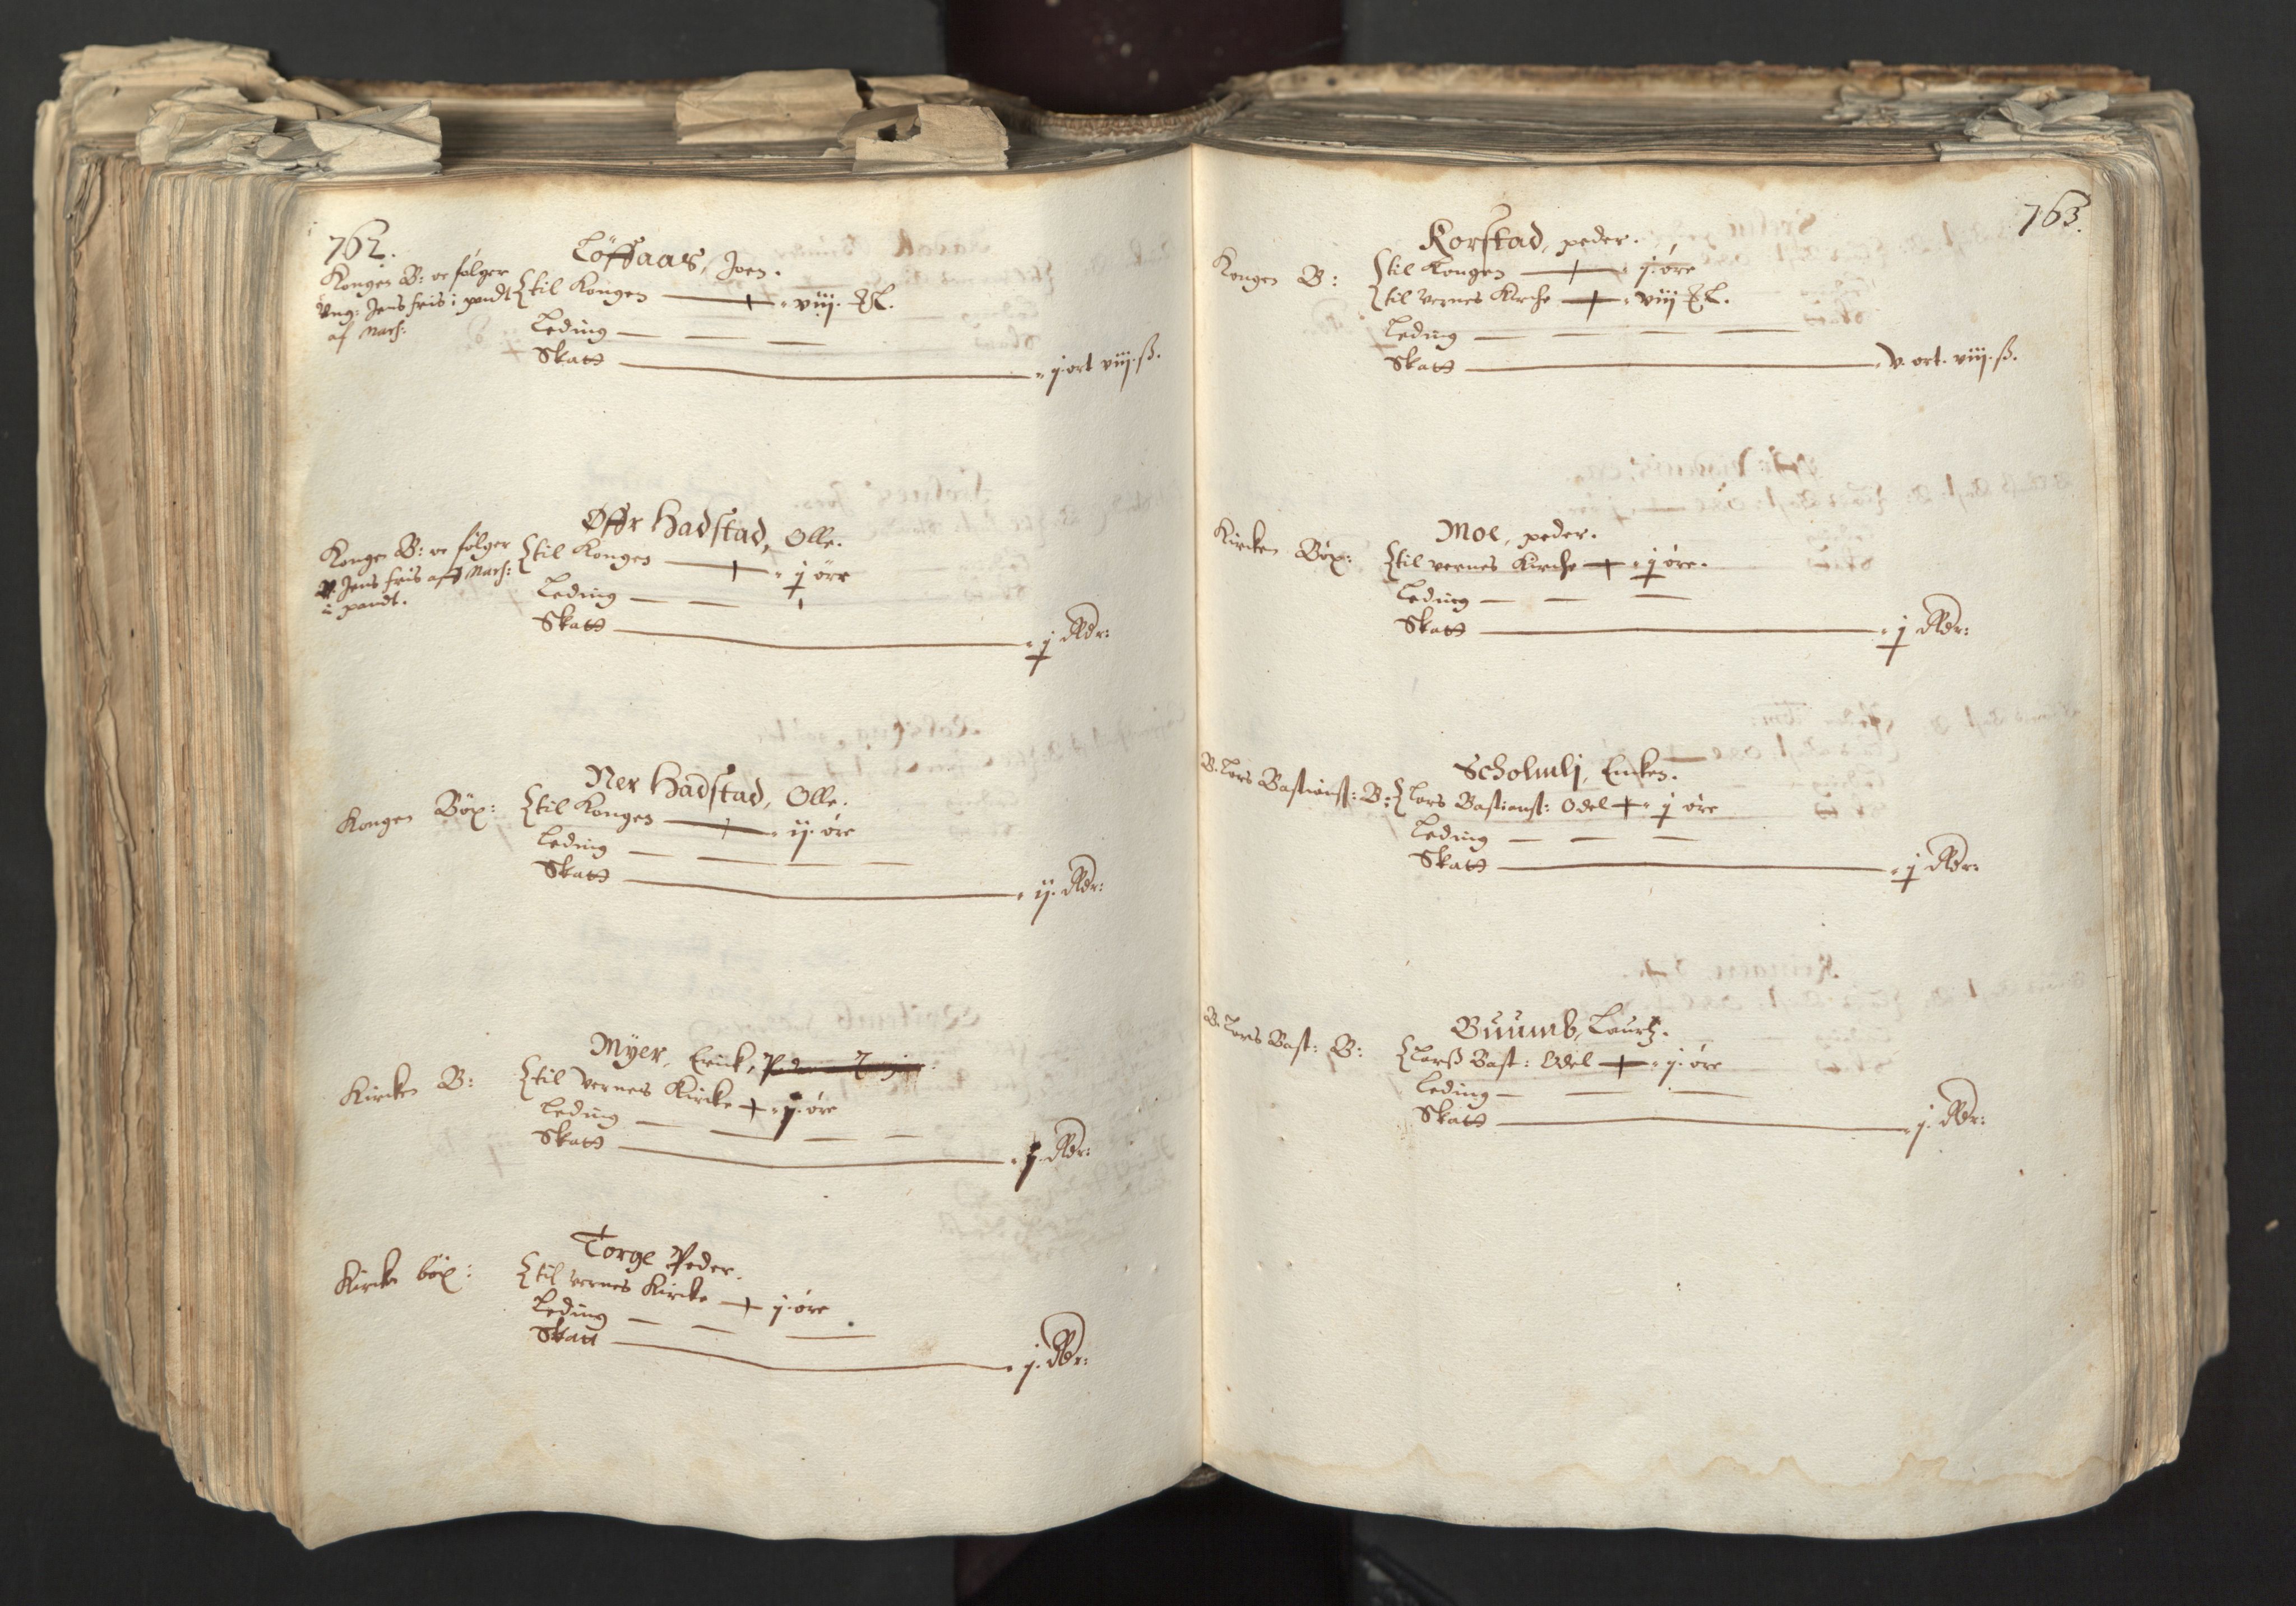 762.
Løffaas, Joen.
Kongen B: oc følger
Vng: Jens friis i pandt
af Mach:
til Kongen — viij. Ʒl.
Leding
Skatt — j ort viij. ß.
Øffr Hadstad, Olle.
Kongen B: oc følger
V. Jens friis aff Mach:
i pandt.
til Kongen — j øre
Leding
Skatt — j Rdr:
Ner Hadstad, Olle.
Kongen Böx: til Kongen — ij. øre
Leding
Skatt — ij. Rdr:
Myer, Erick,
Kircken B: til Vernes Kircke — j. øre
Leding
Skatt — j. Rdr:
Torge Peder.
Kircke böx: til Vernes Kircke — j. øre
Leding
Skatt — j. Rdr:
763.
Korstad, peder.
Kongen B: til Kongen — j. øre
til Vernes Kirche — viij Ʒl.
Leding
Skatt — v. ort. viij. ß.
Moe, peder.
Kircken Böx: til vernes Kirche — j øre.
Leding
Skatt — j Rdr:
Scholmlj, Encken.
B. Lars Bastianß: B: Lars Bastianß: Odel — j øre
Leding
Skatt — j Rdr:
Buumb, Lauritz.
B. Lars Bast: B: Larß Bast: Odel — j. øre
Leding
Skatt — j. Rdr: